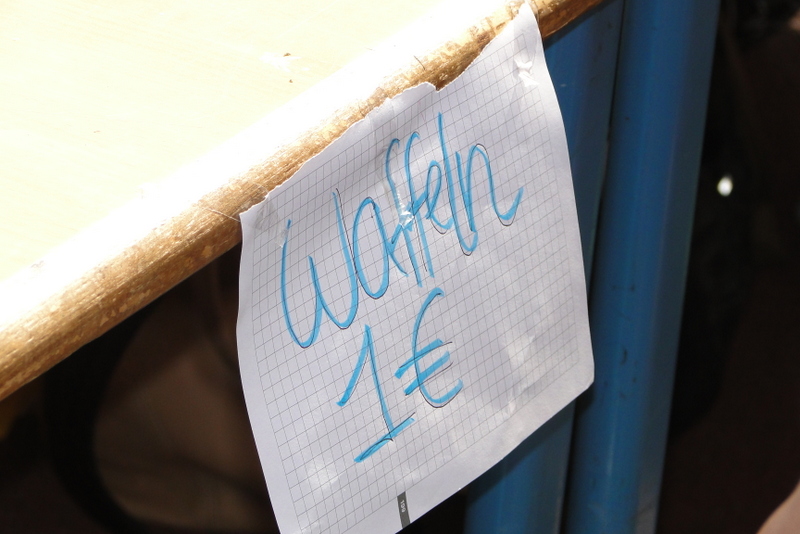 Waffeln
1€